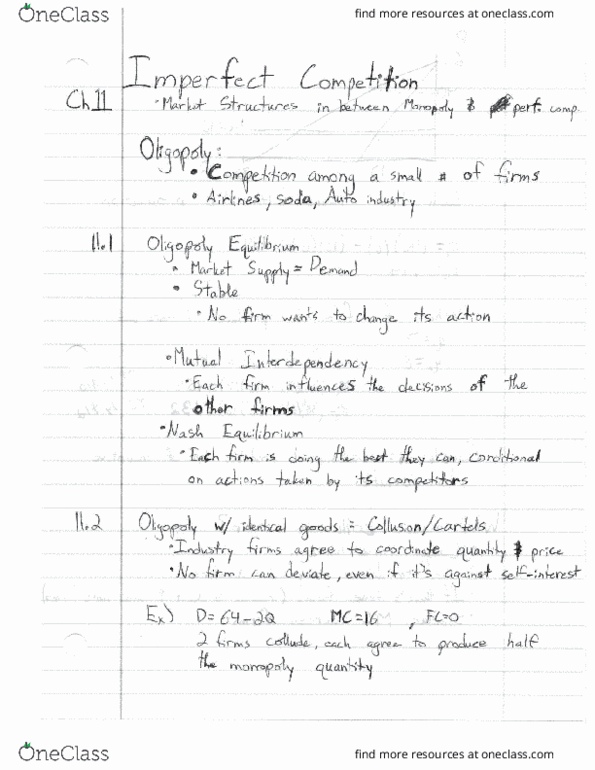 OneClass
find more resources at oneclass.com
Imperfect Competition
Ch 11
• Market Structures in between Monopoly & perf. comp
Oligopoly:
• Competition among a small # of firms
• Airlines, soda, Auto industry
11.1 Oligopoly Equilibrium
• Market Supply = Demand
• Stable
• No firm wants to change its action
• Mutual Interdependency
• Each firm influences the decisions of the
other firms
• Nash Equilibrium
• Each firm is doing the best they can, conditional
on actions taken by its competitors
11.2 Oligopoly w/ identical goods = Collusion/Cartels
• Industry firms agree to coordinate quantity & price
• No firm can deviate, even if it's against self-interest
Ex) D=64-2Q MC=16, FC=0
2 firms collude, each agree to produce half
the monopoly quantity
OneClass
find more resources at oneclass.com